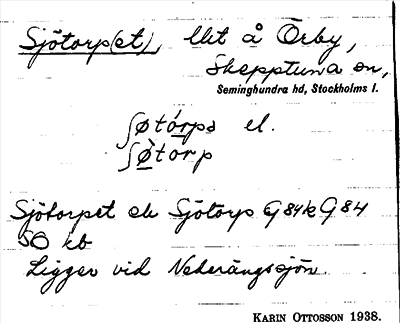 Sjötorp(et), lht å Örby,
Skepptuna sn,
Seminghundra hd, Stockholms l.
ʃøtórpə el.
ʃø̀torp
Sjötorpet el. Sjötorp G 84 k G 84
SO kb
Ligger vid Nederängssjön.
KARIN OTTOSSON 1938.